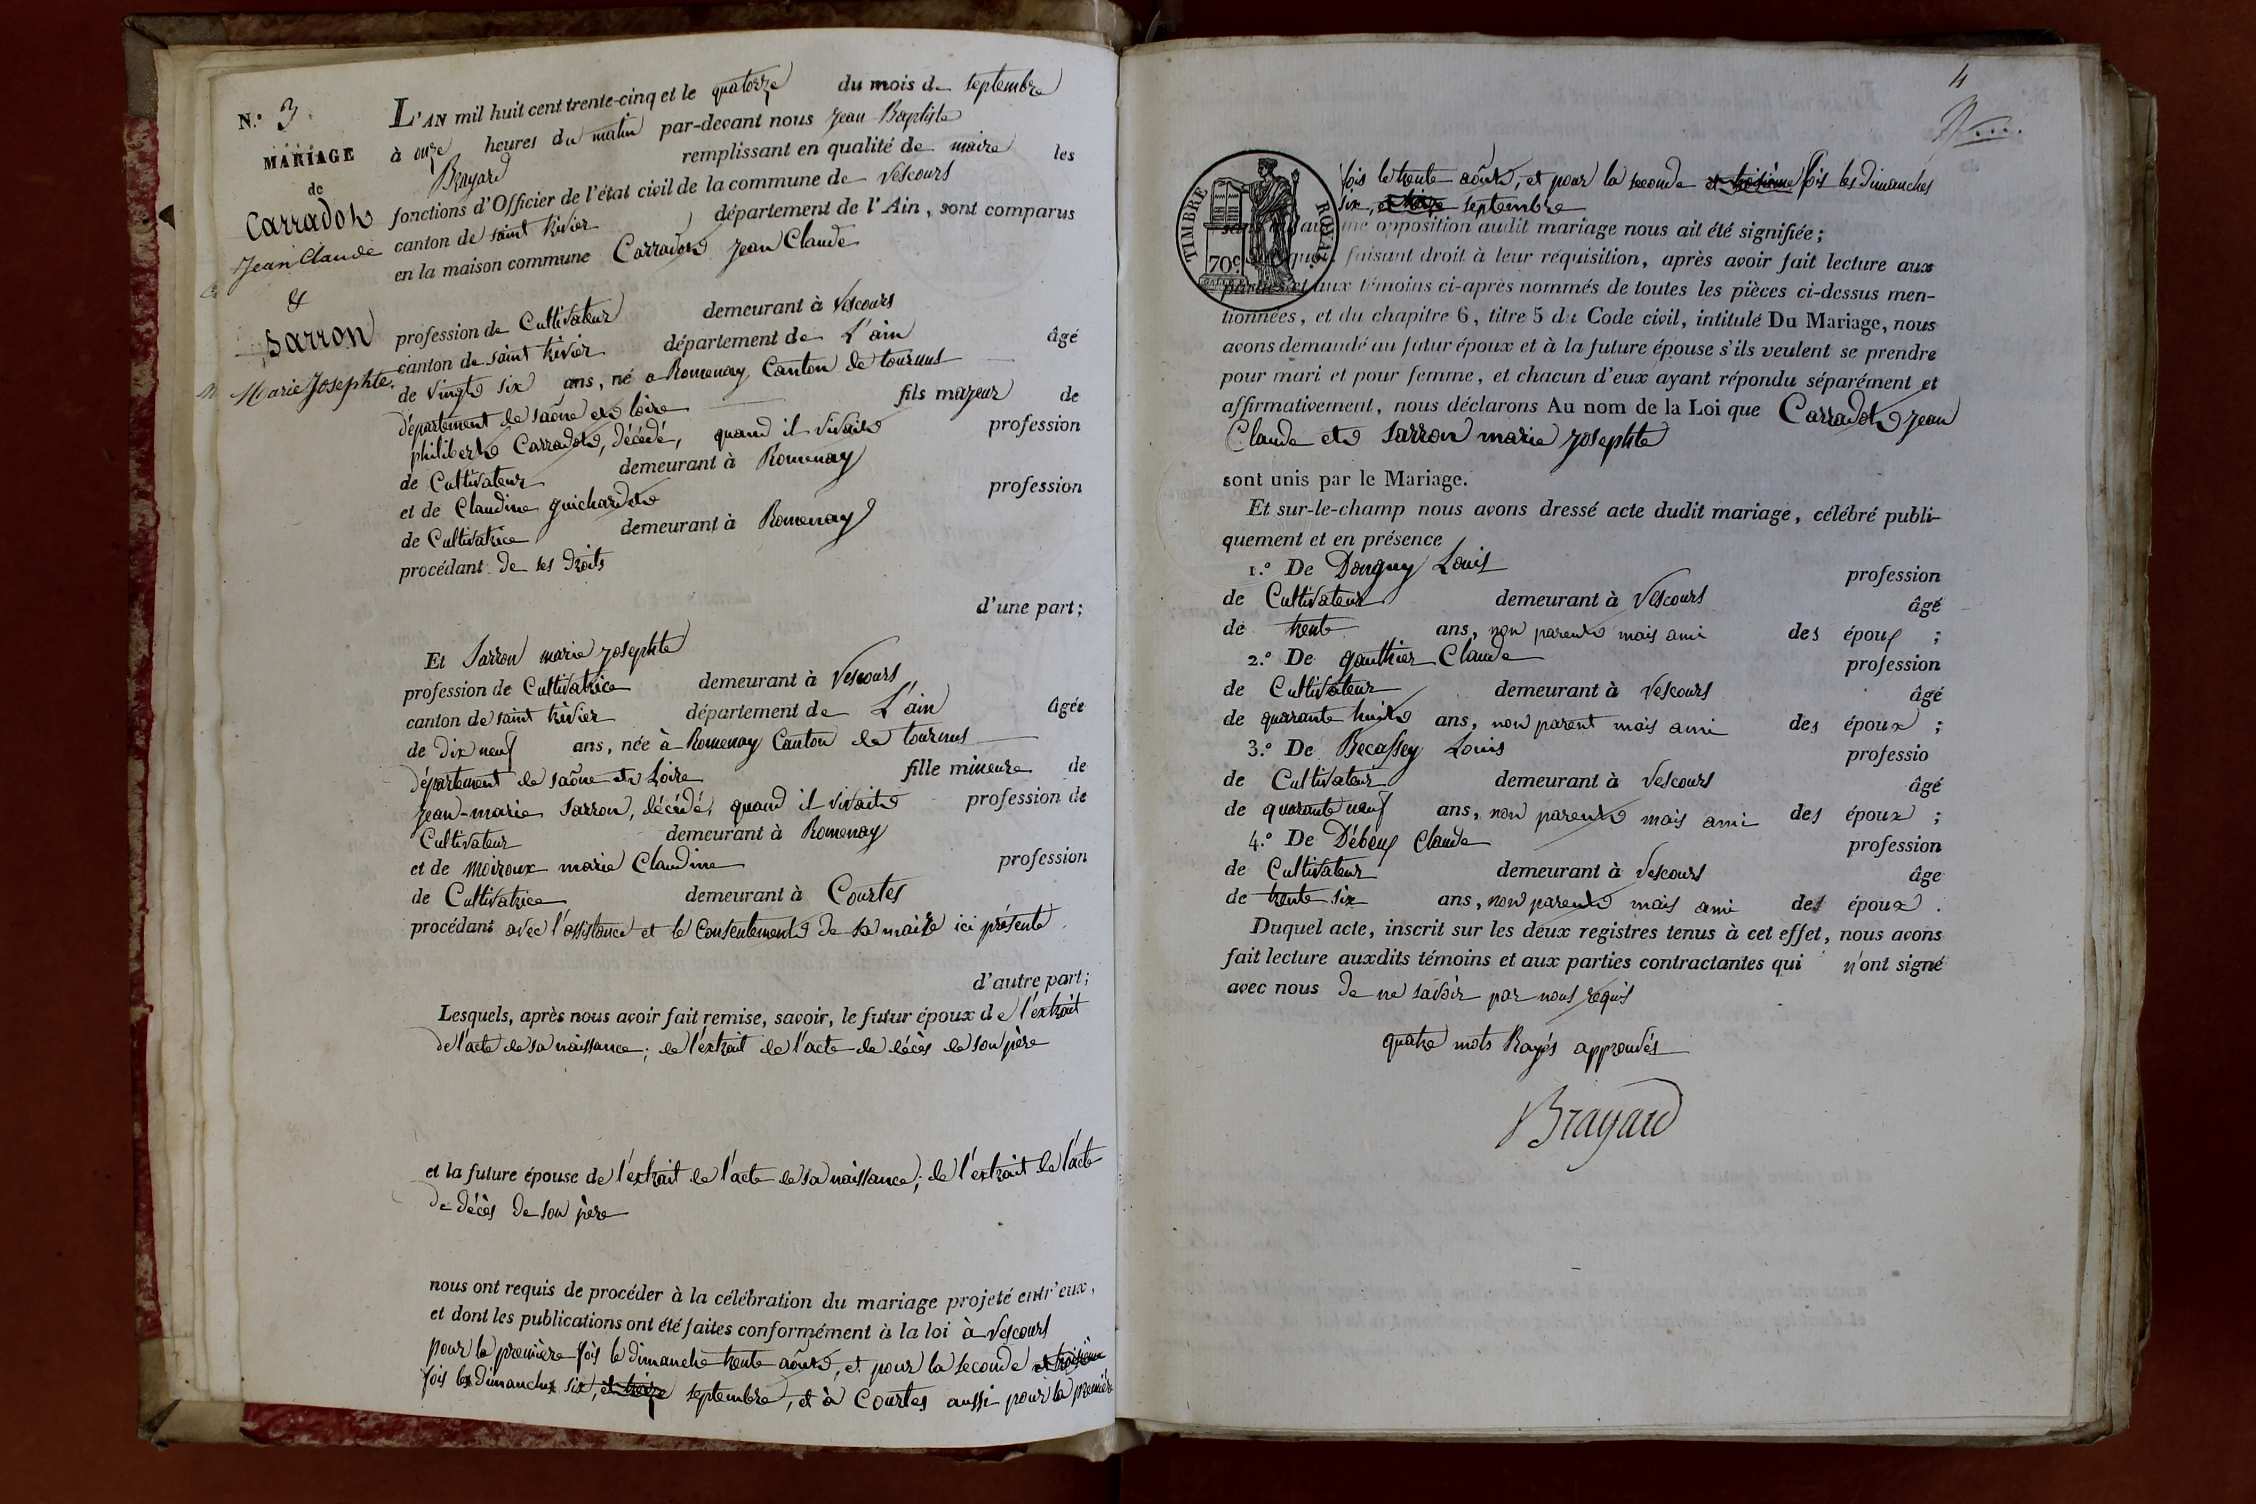 N.o 3
MARIAGE
de
Carradot
Jean Claude
&
Sarron
Marie Josephte.
L'AN mil huit cent trente-cinq et le quatorze du mois de septembre
à onze heures du matin par-devant nous Jean Baptiste
Brayard remplissant en qualité de maire les
fonctions d'Officier de l'état civil de la commune de Vescours
canton de saint trivier département de l'Ain, sont comparus
en la maison commune Carradot Jean Claude
profession de Cultivateur demeurant à Vescours
canton de saint trivier département de L'ain âgé
de vingt six ans, né a Romenay Canton de tournus
département de saône et loire fils majeur de
philibert Carradot, décédé, quand il vivait profession
de Cultivateur demeurant à Romenay
et de Claudine guichardot profession
de Cultivatrice demeurant à Romenay
procédant de ses droits
d'une part;
Et Sarron marie josephte
profession de Cultivatrice demeurant à Vescours
canton de saint trivier département de L'ain âgée
de dix neuf ans, née à Romenay Canton de tournus
département de saône et Loire fille mineure de
jean-marie sarron, décédé, quand il vivait profession de
Cultivateur demeurant à Romenay
et de moiroux marie Claudine profession
de Cultivatrice demeurant à Courtes
procédant avec l'assistance et le Consentement de sa maire ici présente
d'autre part;
Lesquels, après nous avoir fait remise, savoir, le futur époux de l'extrait
de l'acte de sa naissance; de l'extrait de l'acte de décès de son père
et la future épouse de l'extrait de l'acte de sa naissance; de l'extrait de l'acte
de décès de son père
nous ont requis de procéder à la célébration du mariage projeté entr'eux,
et dont les publications ont été faites conformément à la loi à Vescours
pour la première fois le dimanche trente août, et pour la seconde et troisième
fois les dimanches six, et treize septembre, et à Courtes aussi pour la première
4
TIMBRE ROYAL.
70c
fois le trente août, et pour la seconde et troisième fois les dimanches
six, et treize septembre
opposition audit mariage nous ait été signifiée;
faisant droit à leur réquisition, après avoir fait lecture aux
parties et aux témoins ci-après nommés de toutes les pièces ci-dessus men-
tionnées, et du chapitre 6, titre 5 du Code civil, intitulé Du Mariage, nous
avons demandé au futur époux et à la future épouse s'ils veulent se prendre
pour mari et pour femme, et chacun d'eux ayant répondu séparément et
affirmativement, nous déclarons Au nom de la Loi que Carradot jean
Claude et Sarron marie josephte
sont unis par le Mariage.
Et sur-le-champ nous avons dressé acte dudit mariage, célébré publi-
quement et en présence
1.o De Donguy Louis profession
de Cultivateur demeurant à Vescours âgé
de trente ans, non parent mais ami des époux ;
2.o De gauthier Claude profession
de Cultivateur demeurant à Vescours âgé
de quarante huit ans, non parent mais ami des époux ;
3.o De Becassey Louis professio
de Cultivateur demeurant à Vescours âgé
de quarante neuf ans, non parent mais ami des époux ;
4.o De Débouf Claude profession
de Cultivateur demeurant à Vescours âge
de trente six ans, non parent mais ami des époux .
Duquel acte, inscrit sur les deux registres tenus à cet effet, nous avons
fait lecture auxdits témoins et aux parties contractantes qui n'ont signé
avec nous de ne savoir par nous requis
quatre mots Rayés approuvés
Brayard